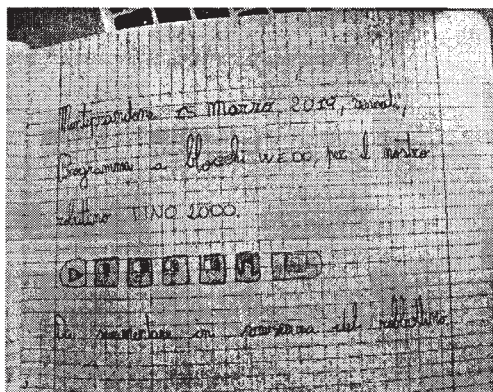 Monteprandone 15 Marzo, 2019, venerdì,
Programma a blocchi WEDO, per il nostro
robottino TINO 2000.
Da sperimentare in presenza del robottino